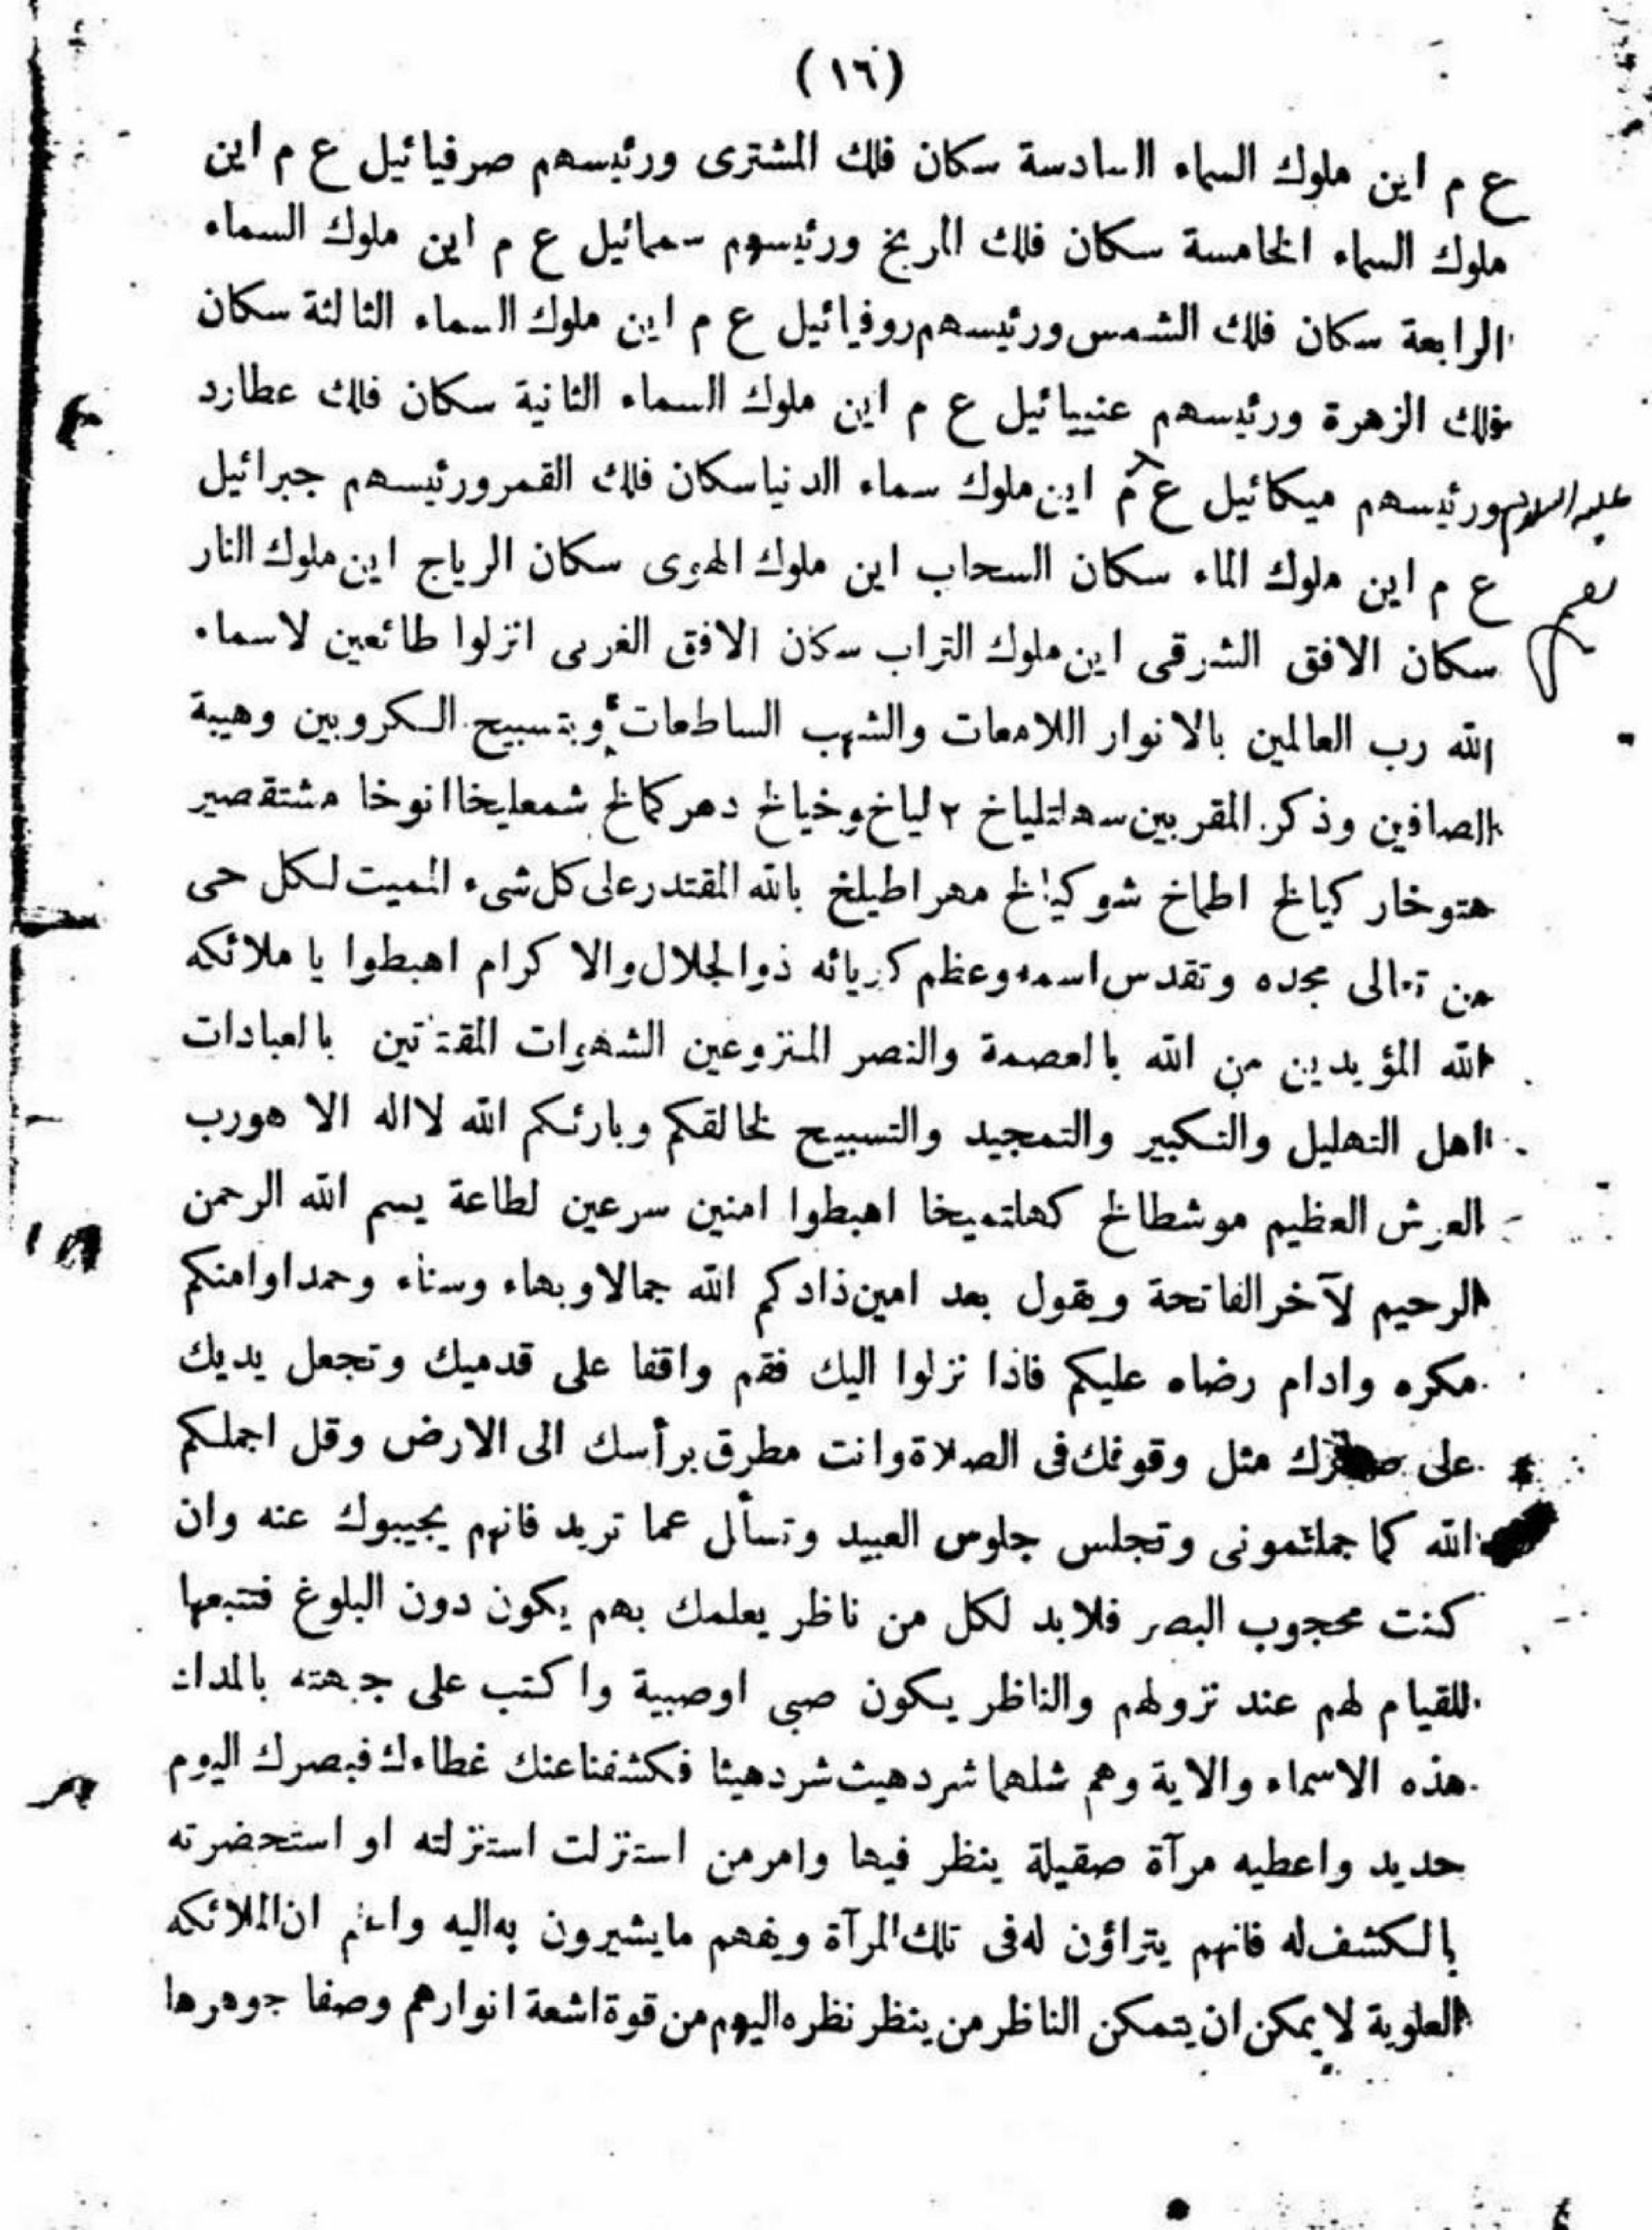 (١٦)
ع م اين ملوك السماء السادسة سكان فلك المشترى ورئيسهم صرفيائيل ع م اين
ملوك السماء الخامسة سكان فلك المريخ ورئيسهم سمائيل ع م اين ملوك السماء
الرابعة سكان فلك الشمس ورئيسهم روفيائيل ع م اين ملوك السماء الثالثة سكان
فلك الزهرة ورئيسهم عنييائيل ع م اين ملوك السماء الثانية سكان فلك عطارد
عليه السلام ورئيسهم ميكائيل ع م اين ملوك سماء الدنيا سكان فلك القمر ورئيسهم جبرائيل
ع م اين ملوك الماء سكان السحاب اين ملوك الهوى سكان الرياح اين ملوك النار
سكان الافق الشرقى اين ملوك التراب سكان الافق الغربى انزلوا طائعين لاسماء
الله رب العالمين بالانوار اللامعات والشهب الساطعات وبتسبيح الكروبين وهيبة
الصافين وذكر المقربين ٢ لياخ وخيالخ دهركالخ شمعليخا انوخا مشتقصير
هتوخار كيالخ اطماخ شوكيالخ مهراطيلخ بالله المقتدر على كل شىء المميت لكل حى
من تعالى مجده وتقدس اسمه وعظم كبريائه ذوالجلال والاكرام اهبطوا يا ملائكه
الله المؤيدين من الله بالعصمة والنصر المنزوعين الشهوات بالعبادات
اهل التهليل والتكبير والتمجيد والتسبيح لخالقكم وبارئكم الله لااله الا هورب
العرش العظيم موشطالخ كهلتميخا اهبطوا امنين سرعين لطاعة بسم الله الرحمن
الرحيم لآخر الفاتحة ويقول بعد امين ذادكم الله جمالا وبهاء وسناء وحمدا وامنكم
مكره وادام رضاه عليكم فاذا نزلوا اليك فقم واقفا على قدميك وتجعل يديك
على صدرك مثل وقوفك فى الصلاة وانت مطرق برأسك الى الارض وقل اجملكم
الله كما جملتمونى وتجلس جلوس العبيد وتسأل عما تريد فانهم يجيبوك عنه وان
كنت محجوب البصر فلابد لكل من ناظر يعلمك بهم يكون دون البلوغ فتتبعها
للقيام لهم عند نزولهم والناظر يكون صبى اوصبية واكتب على جبهته بالمداد
هذه الاسماء والاية وهم شلهما شردهيث شردهيثا فكشفنا عنك غطاءك فبصرك اليوم
حديد واعطيه مرآة صقيلة ينظر فيها وامر من استزلت استزلته او استحضرته
بالكشف له فانهم يتراؤن له فى تلك المرآة ويفهم مايشيرون به اليه واعلم ان الملائكه
العلوية لا يمكن ان يتمكن الناظر من ينظر نظره اليهم من قوة اشعة انوارهم وصفا جوهرها